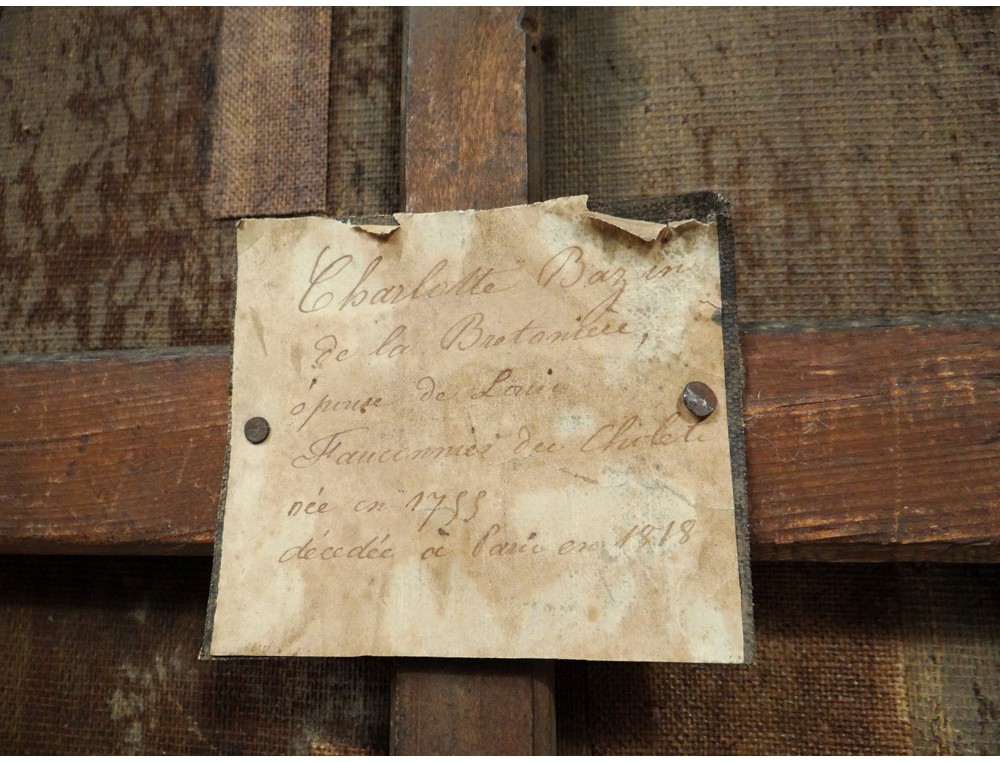 Charlotte Bazin
de la Bretonnière,
épouse de Louis
Fauconnier du Chalet
née en 1755
décédée à Paris en 1818